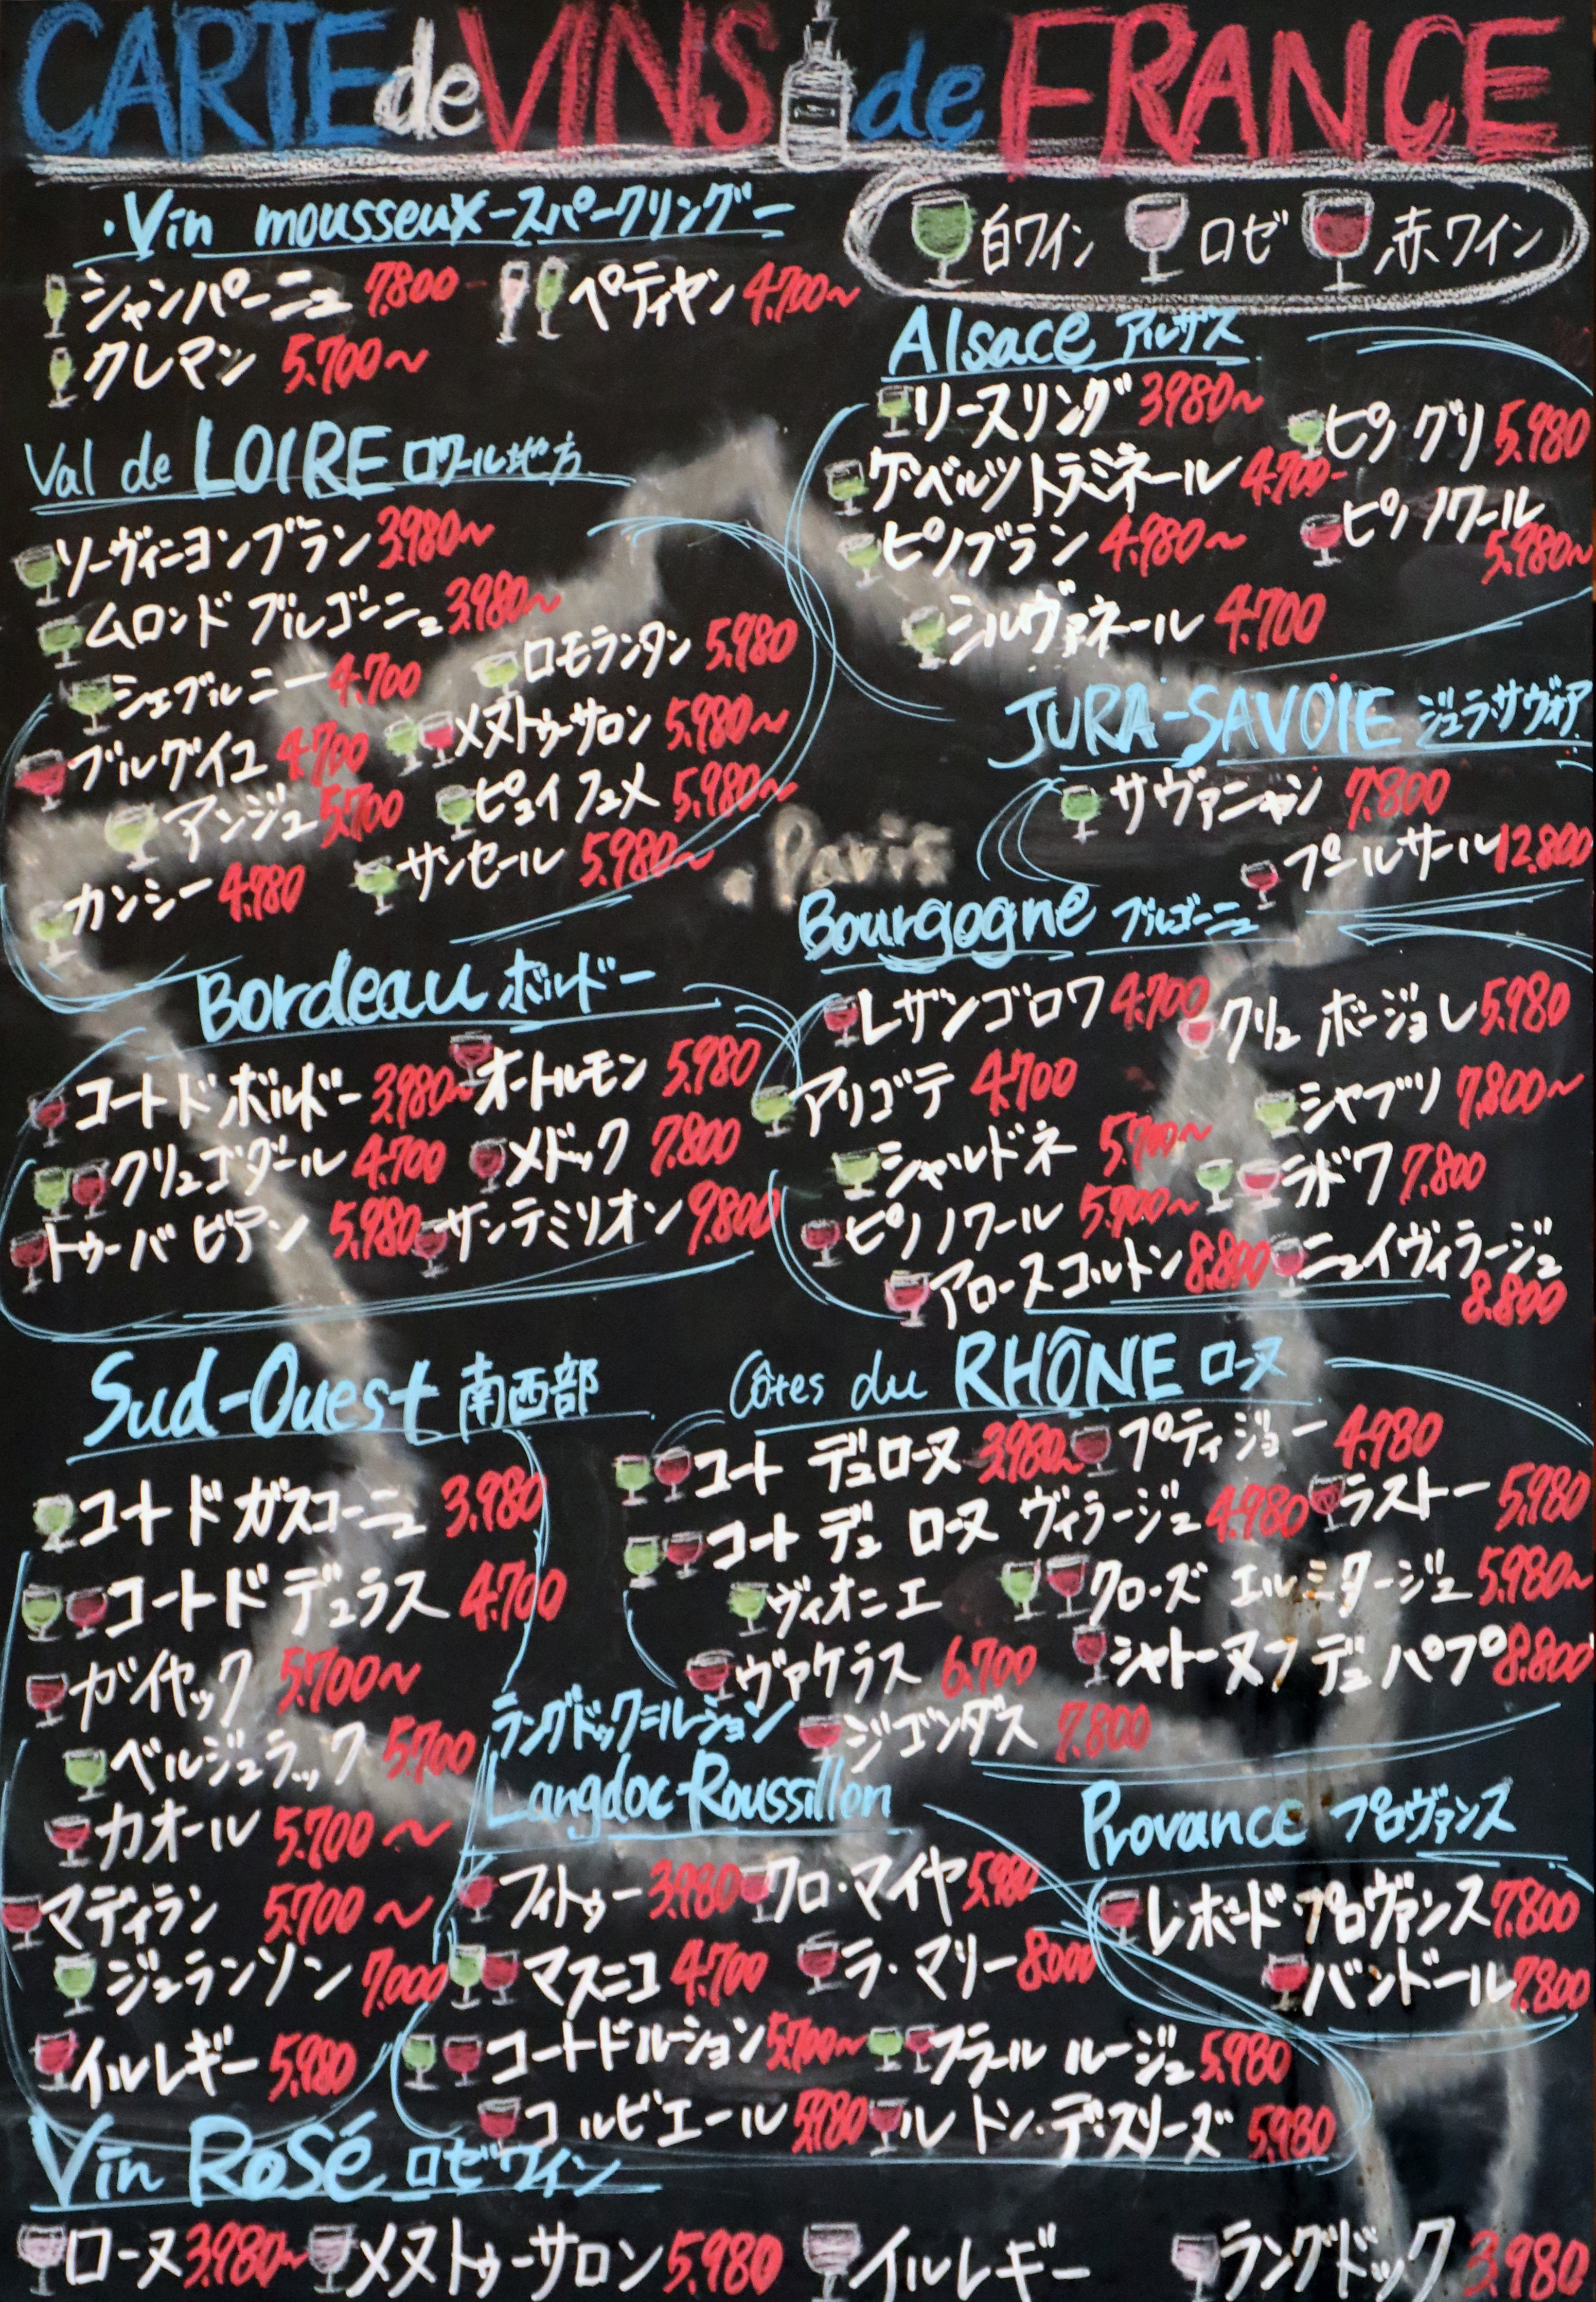 CARTE de VINS de FRANCE
・Vin mousseux-スパークリングー
シャンパーニュ 7.800-
ペティヤン 4.700〜
クレマン 5.700〜
白ワイン ロゼ 赤ワイン
Val de LOIRE ロワール地方
ソーヴィニヨンブラン 3.980〜
ムロンド ブルゴーニュ 3.980〜
シュブルニー 4.700
ロモランタン 5.980
ブルグイユ 4.700
メヌトゥーサロン 5.980〜
アンジュ 5.700
ピュイ フュメ 5.980〜
カンシー 4.980
サンセール 5.980〜
Alsace アルザス
リースリング 3.980〜
ピノ グリ 5.980
ゲベルツトラミネール 4.700-
ピノ ノワール 5.980〜
ピノブラン 4.980〜
シルヴァネール 4.700
JURA-SAVOIE ジュラ・サヴォア
サヴァニャン 7.800
プールサール 12.800
.Paris
Bourgogne ブルゴーニュ
レザンゴロワ 4.700
クリュ ボージョレ 5.980
アリゴテ 4.700
シャブリ 7.800〜
シャルドネ 5.700〜
ラドワ 7.800
ピノ ノワール 5.700〜
ニュイヴィラージュ 8.800
アロースコルトン 8.800
Bordeau ボルドー
コートドボルドー 3.980〜
オートルモン 5.980
クリュゴダール 4.700
メドック 7.800
トゥーバ ビアン 5.980
サンテミリオン 9.800
Sud-Ouest 南西部
コートドガスコーニュ 3.980
コートドデュラス 4.700
ガイヤック 5.700〜
ベルジュラック 5.700
カオール 5.700〜
マディラン 5.700〜
ジュランソン 7.000
イルレギー 5.980
Côtes du RHÔNE ローヌ
コート デュローヌ 3.980〜
プティジョー 4.980
コート デュ ローヌ ヴィラージュ 4.980
ラストー 5.980
ヴィオニエ
クローズ エルミタージュ 5.980〜
ヴァケラス 6.700
シャトーヌフ デュ パプ 8.800
ジゴンダス 7.800
ラングドック=ルーション
Langdoc-Roussillon
フィトゥー 3.980
クロ・マイヤ 5.980
マスニコ 4.700
ラ・マリー 8.000
コートドルーション 5.700〜
フラール ルージュ 5.980
コルビエール 5.980
ル トン・デ・スリーズ 5.980
Provance プロヴァンス
レボード・プロヴァンス 7.800
バンドール 7.800
Vin Rosé ロゼワイン
ローヌ 3.980〜 メヌトゥーサロン 5.980 イルレギー ラングドック 3.980